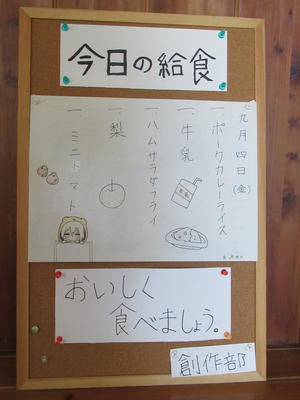 今日の給食
九月四日(金)
一 ポークカレーライス
一、牛乳
一、ハムサラダフライ
一、梨
一、ミニトマト
牛乳
おいしく
食べましょう。
創作部